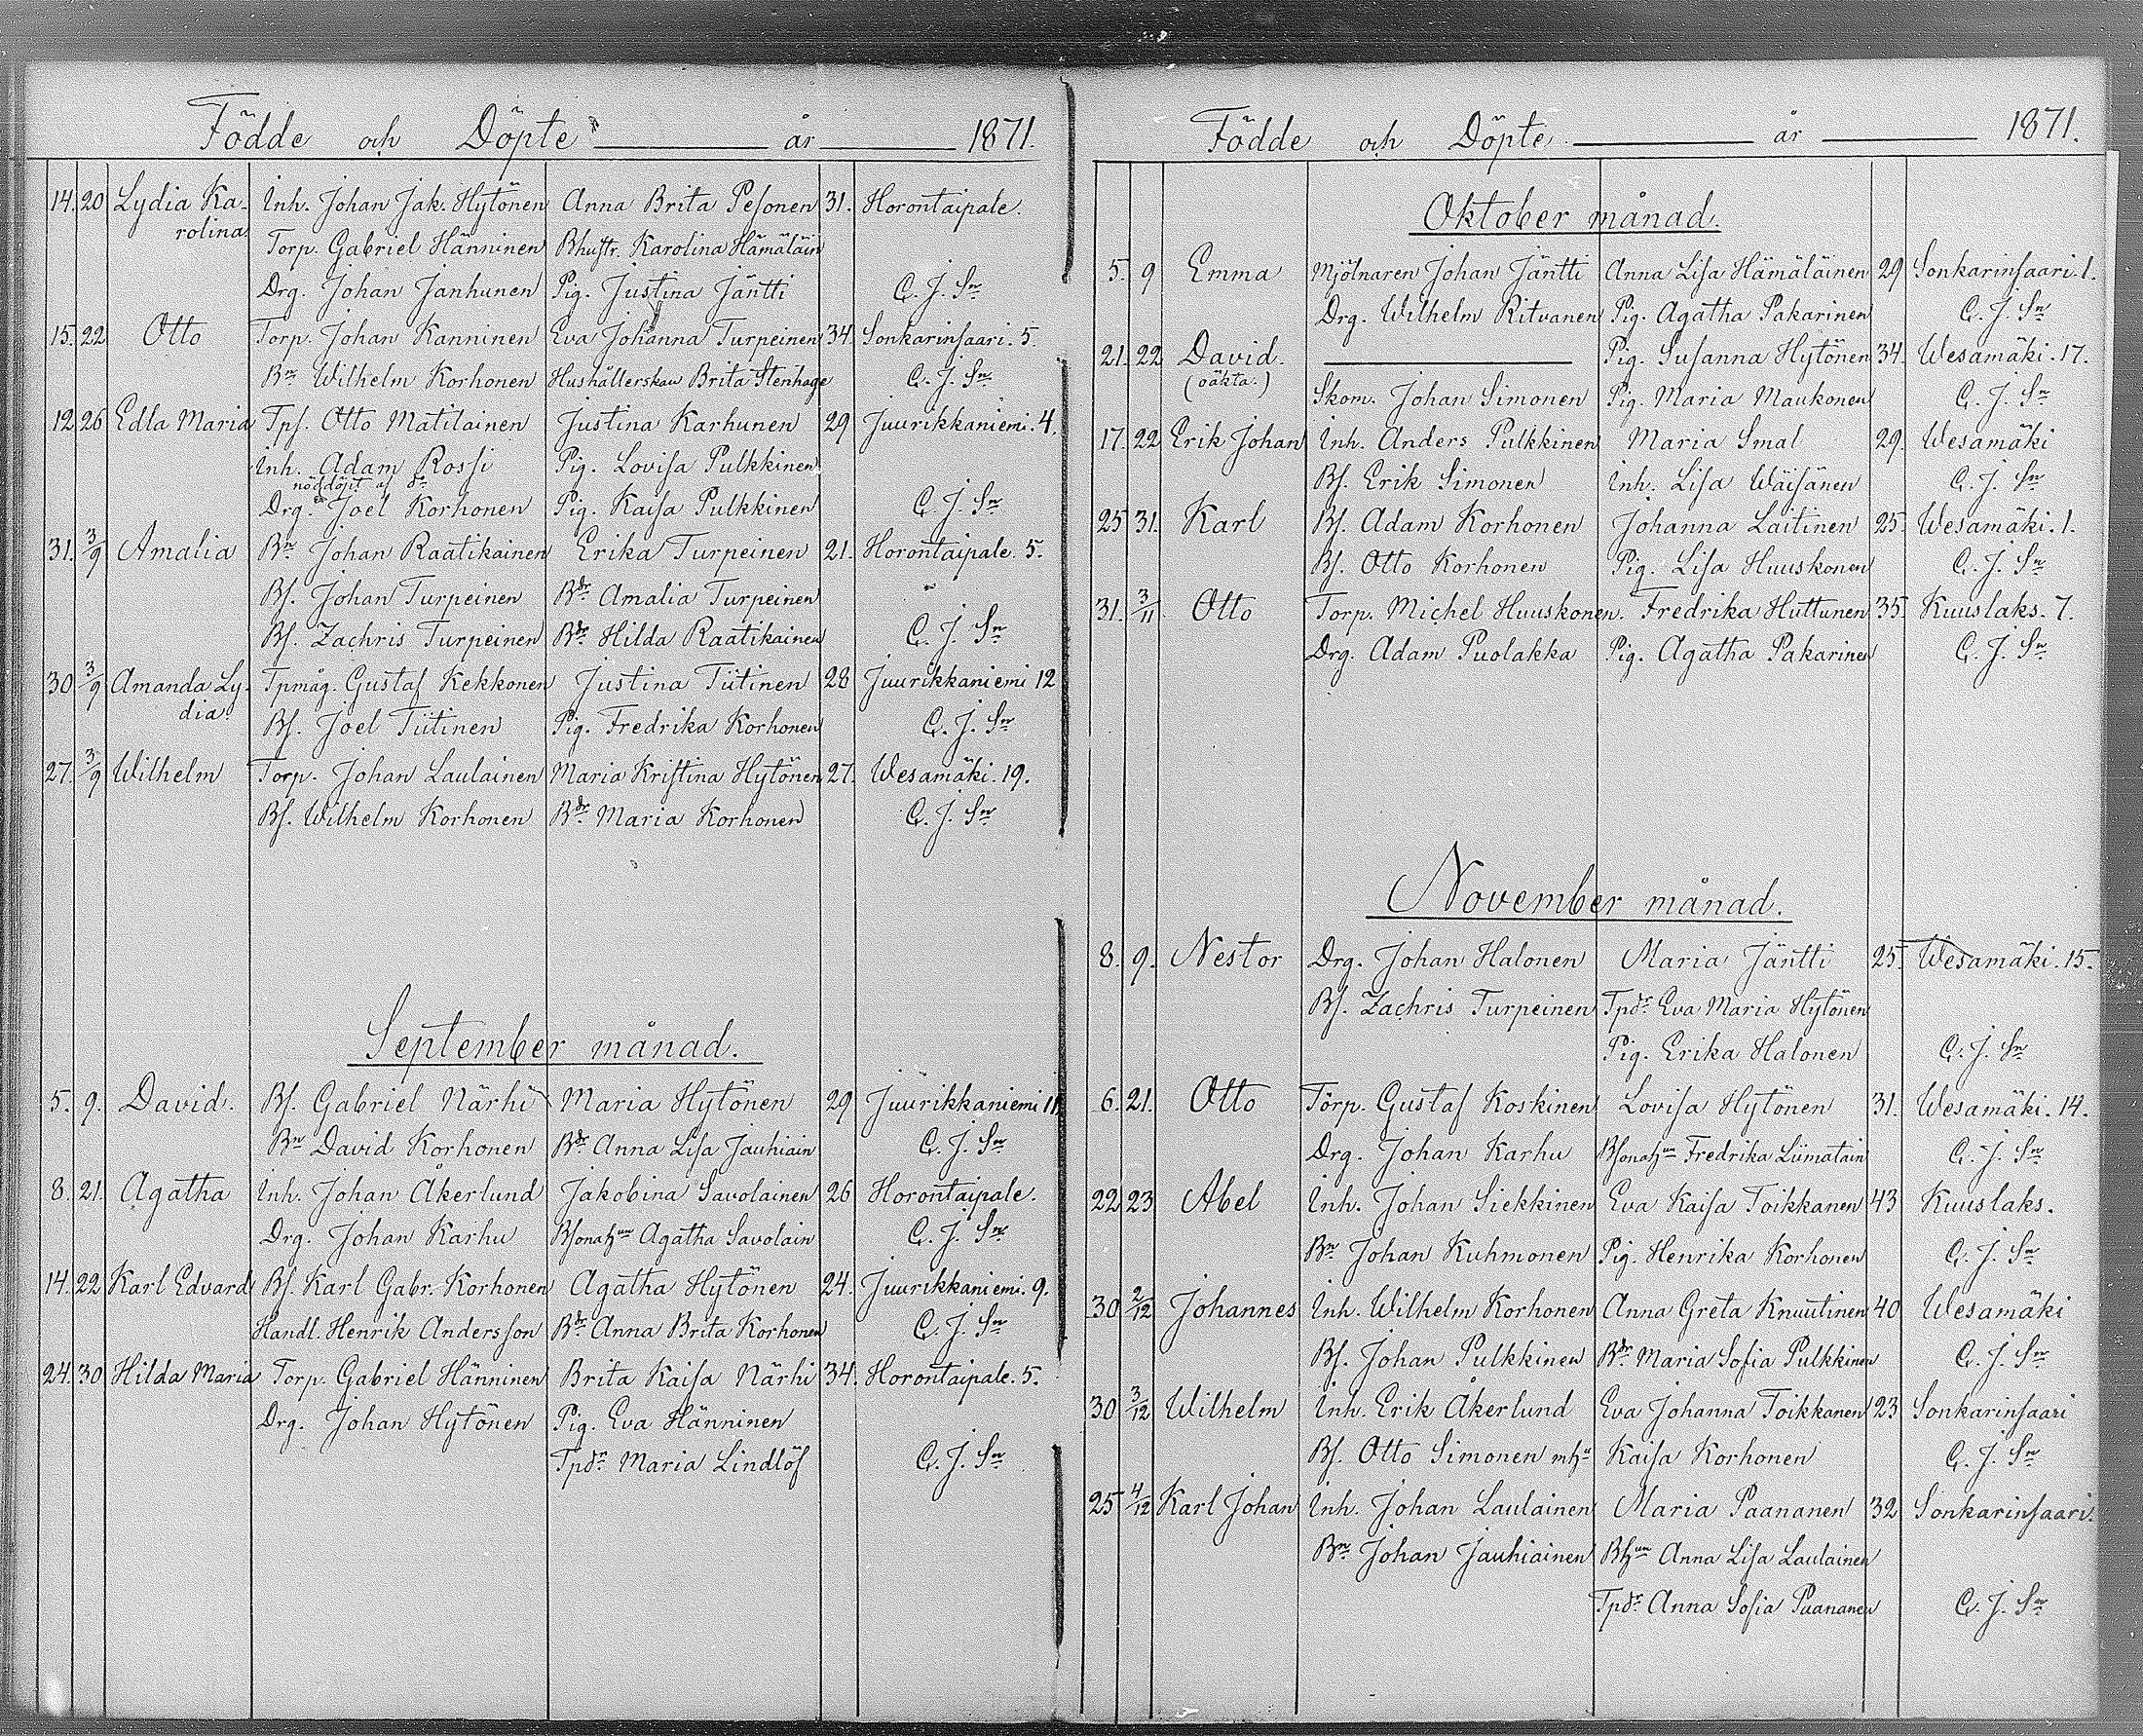 Födde och Döpte år 1871.
14. 20 Lydia Ka- Inh. Johan Jak. Hytönen Anna Brita Pesonen 31. Horontaipale.
rolina Torp. Gabriel Hänninen Bhustr. Karolina Hämäläin
Drg. Johan Janhunen Pig. Justina Jäntti C. J. Sn
15. 22 Otto Torp. Johan Kanninen Eva Johanna Turpeinen 34. Sonkarinsaari. 5.
Bn Wilhelm Korhonen Hushållerskan Brita Stenhage C. J. Sn
12 26 Edla Maria Tps. Otto Matilainen Justina Karhunen 29 Juurikkaniemi. 4.
Inh. Adam Rossi Pig. Lovisa Pulkkinen
nöddöpt af
Drg. Joel Korhonen Pig. Kaisa Pulkkinen C. J. Sn
31. 3/9 Amalia Bn Johan Raatikainen Erika Turpeinen 21. Horontaipale. 5.
Bs. Johan Turpeinen Bdr Amalia Turpeinen
Bs. Zachris Turpeinen Bdr Hilda Raatikainen C. J. Sn
30 3/9 Amanda Ly- Tpmåg. Gustaf Kekkonen Justina Tiitinen 28 Juurikkaniemi 12
dia. Bs. Joel Tiitinen Pig. Fredrika Korhonen C. J. Sn
27. 3/9 Wilhelm Torp. Johan Laulainen Maria Kristina Hytönen 27. Wesamäki. 19.
Bs. Wilhelm Korhonen Bdr Maria Korhonen C. J. Sn
September månad.
5. 9. David. Bs. Gabriel Närhi Maria Hytönen 29 Juurikkaniemi 11
Bn David Korhonen Bdr Anna Lisa Jauhiain C. J. Sn
8. 21. Agatha Inh. Johan Åkerlund Jakobina Savolainen 26 Horontaipale.
Drg. Johan Karhu Bsonahun Agatha Savolain C. J. Sn
14. 22 Karl Edvard Bs. Karl Gabr. Korhonen Agatha Hytönen 24. Juurikkaniemi. 9.
Handl. Henrik Andersson Bdr Anna Brita Korhonen C. J. Sn
24. 30 Hilda Maria Torp. Gabriel Hänninen Brita Kaisa Närhi 34. Horontaipale. 5.
Drg. Johan Hytönen Pig. Eva Hänninen
Tpdr Maria Lindlöf C. J. Sn
Födde och Döpte. år 1871.
Oktober månad.
5. 9 Emma Mjölnaren Johan Jäntti Anna Lisa Hämäläinen 29 Sonkarinsaari. 1.
Drg. Wilhelm Ritvanen Pig. Agatha Pakarinen C. J. Sn
21. 22 David. Pig. Susanna Hytönen 34. Wesamäki. 17.
(oäkta.) Skom. Johan Simonen Pig. Maria Maukonen C. J. Sn
17. 22 Erik Johan Inh. Anders Pulkkinen Maria Smal 29. Wesamäki
Bs. Erik Simonen Inh. Lisa Wäisänen C. J. Sn
25 31. Karl Bs. Adam Korhonen Johanna Laitinen 25. Wesamäki. 1.
Bs. Otto Korhonen Pig. Lisa Huuskonen C. J. Sn
31. 3/11 Otto Torp. Michel Huuskonen. Fredrika Huttunen 35. Kuuslaks. 7.
Drg. Adam Puolakka Pig. Agatha Pakarinen C. J. Sn
November månad.
8. 9. Nestor Drg. Johan Halonen Maria Jäntti 25. Wesamäki. 15.
Bs. Zachris Turpeinen Tpdr Eva Maria Hytönen
Pig. Erika Halonen C. J. Sn
6. 21. Otto Torp. Gustaf Koskinen Lovisa Hytönen 31. Wesamäki. 14.
Drg. Johan Karhu Bsonahun Fredrika Liimatain C. J. Sn
22 23 Abel Inh. Johan Siekkinen Eva Kaisa Toikkanen 43 Kuuslaks.
Bn Johan Kuhmonen Pig. Henrika Korhonen C. J. Sn
30 2/12 Johannes Inh. Wilhelm Korhonen Anna Greta Knuutinen 40 Wesamäki
Bs. Johan Pulkkinen Bdr Maria Sofia Pulkkinen C. J. Sn
30 3/12 Wilhelm Inh. Erik Åkerlund Eva Johanna Toikkanen 23 Sonkarinsaari
Bs. Otto Simonen mhu Kaisa Korhonen C. J. Sn
25 4/12 Karl Johan Inh. Johan Laulainen Maria Paananen 32 Sonkarinsaari.
Bn Johan Jauhiainen Bhun Anna Lisa Laulainen
Tpdr Anna Sofia Paananen C. J. Sn